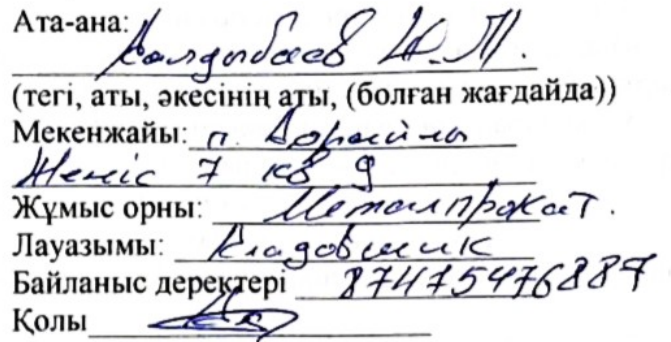 Ата-ана:
Калдыбаев Ж.П.
(тегі, аты, әкесінің аты, (болған жағдайда))
Мекенжайы: п.
Женіс 7 кв 9
Жұмыс орны: Металпрокат.
Лауазымы: Кладовщик
Байланыс деректері 87475476887
Қолы